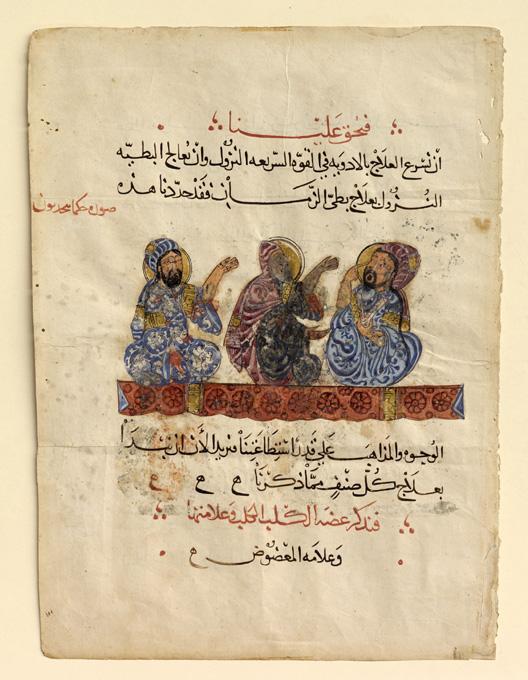 فيحق علينا
ان نسرع العلاج بالادويه في القوه السريعه النزول وان نعالج البطيه
النزول بعلاج بطي الزمان فقد حددنا هذه
صوره حكما
الوجوه والمذاهب علي قدر استطاعتنا فنريد الأن ان نبدا
بعلاج كل صنف مما ذكرنا ح ح ح
فنذكر عضه الكلب الكلب وعلامتها
وعلامه المعضوض ح